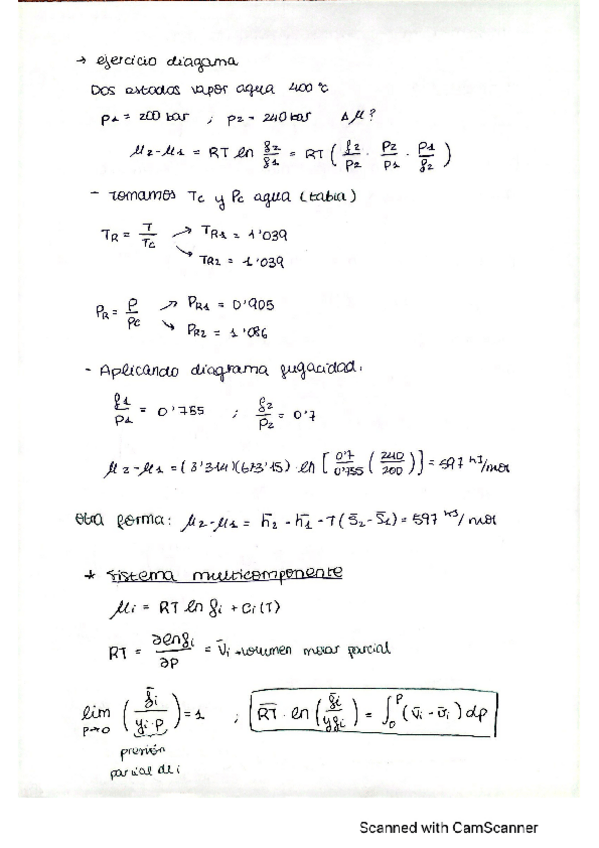 → ejercicio diagama
Dos estados vapor agua 400 °c
P1 = 200 bar ; P2 = 240 bar Δμ?
μ2-μ1 = RT ln f2/f1 = RT ( f2/P2 · P2/P1 · P1/f2 )
- Tomamos Tc y Pc agua (tabla)
TR = T/Tc → TR1 = 1'039
↘ TR2 = 1'039
PR = P/Pc → PR1 = 0'905
↘ PR2 = 1'086
- Aplicando diagrama fugacidad:
f1/P1 = 0'755 ; f2/P2 = 0'7
μ2-μ1 = (8'314)(673'15) · ln [ 0'7/0'755 ( 240/200 ) ] = 597 kJ/mol
otra forma: μ2-μ1 = h̄2 - h̄1 - T( s̄2 - s̄1) = 597 kJ/mol
* Sistema multicomponente
μi = RT ln fi + Ci(T)
RT = ∂lnfi/∂P = V̄i → volumen molar parcial
lim P→0 ( f̄i / yi·P ) = 1 ; RT · ln ( f̄i / yfi ) = ∫0^P (v̄i - v̄i) dp
presión
parcial de i
Scanned with CamScanner